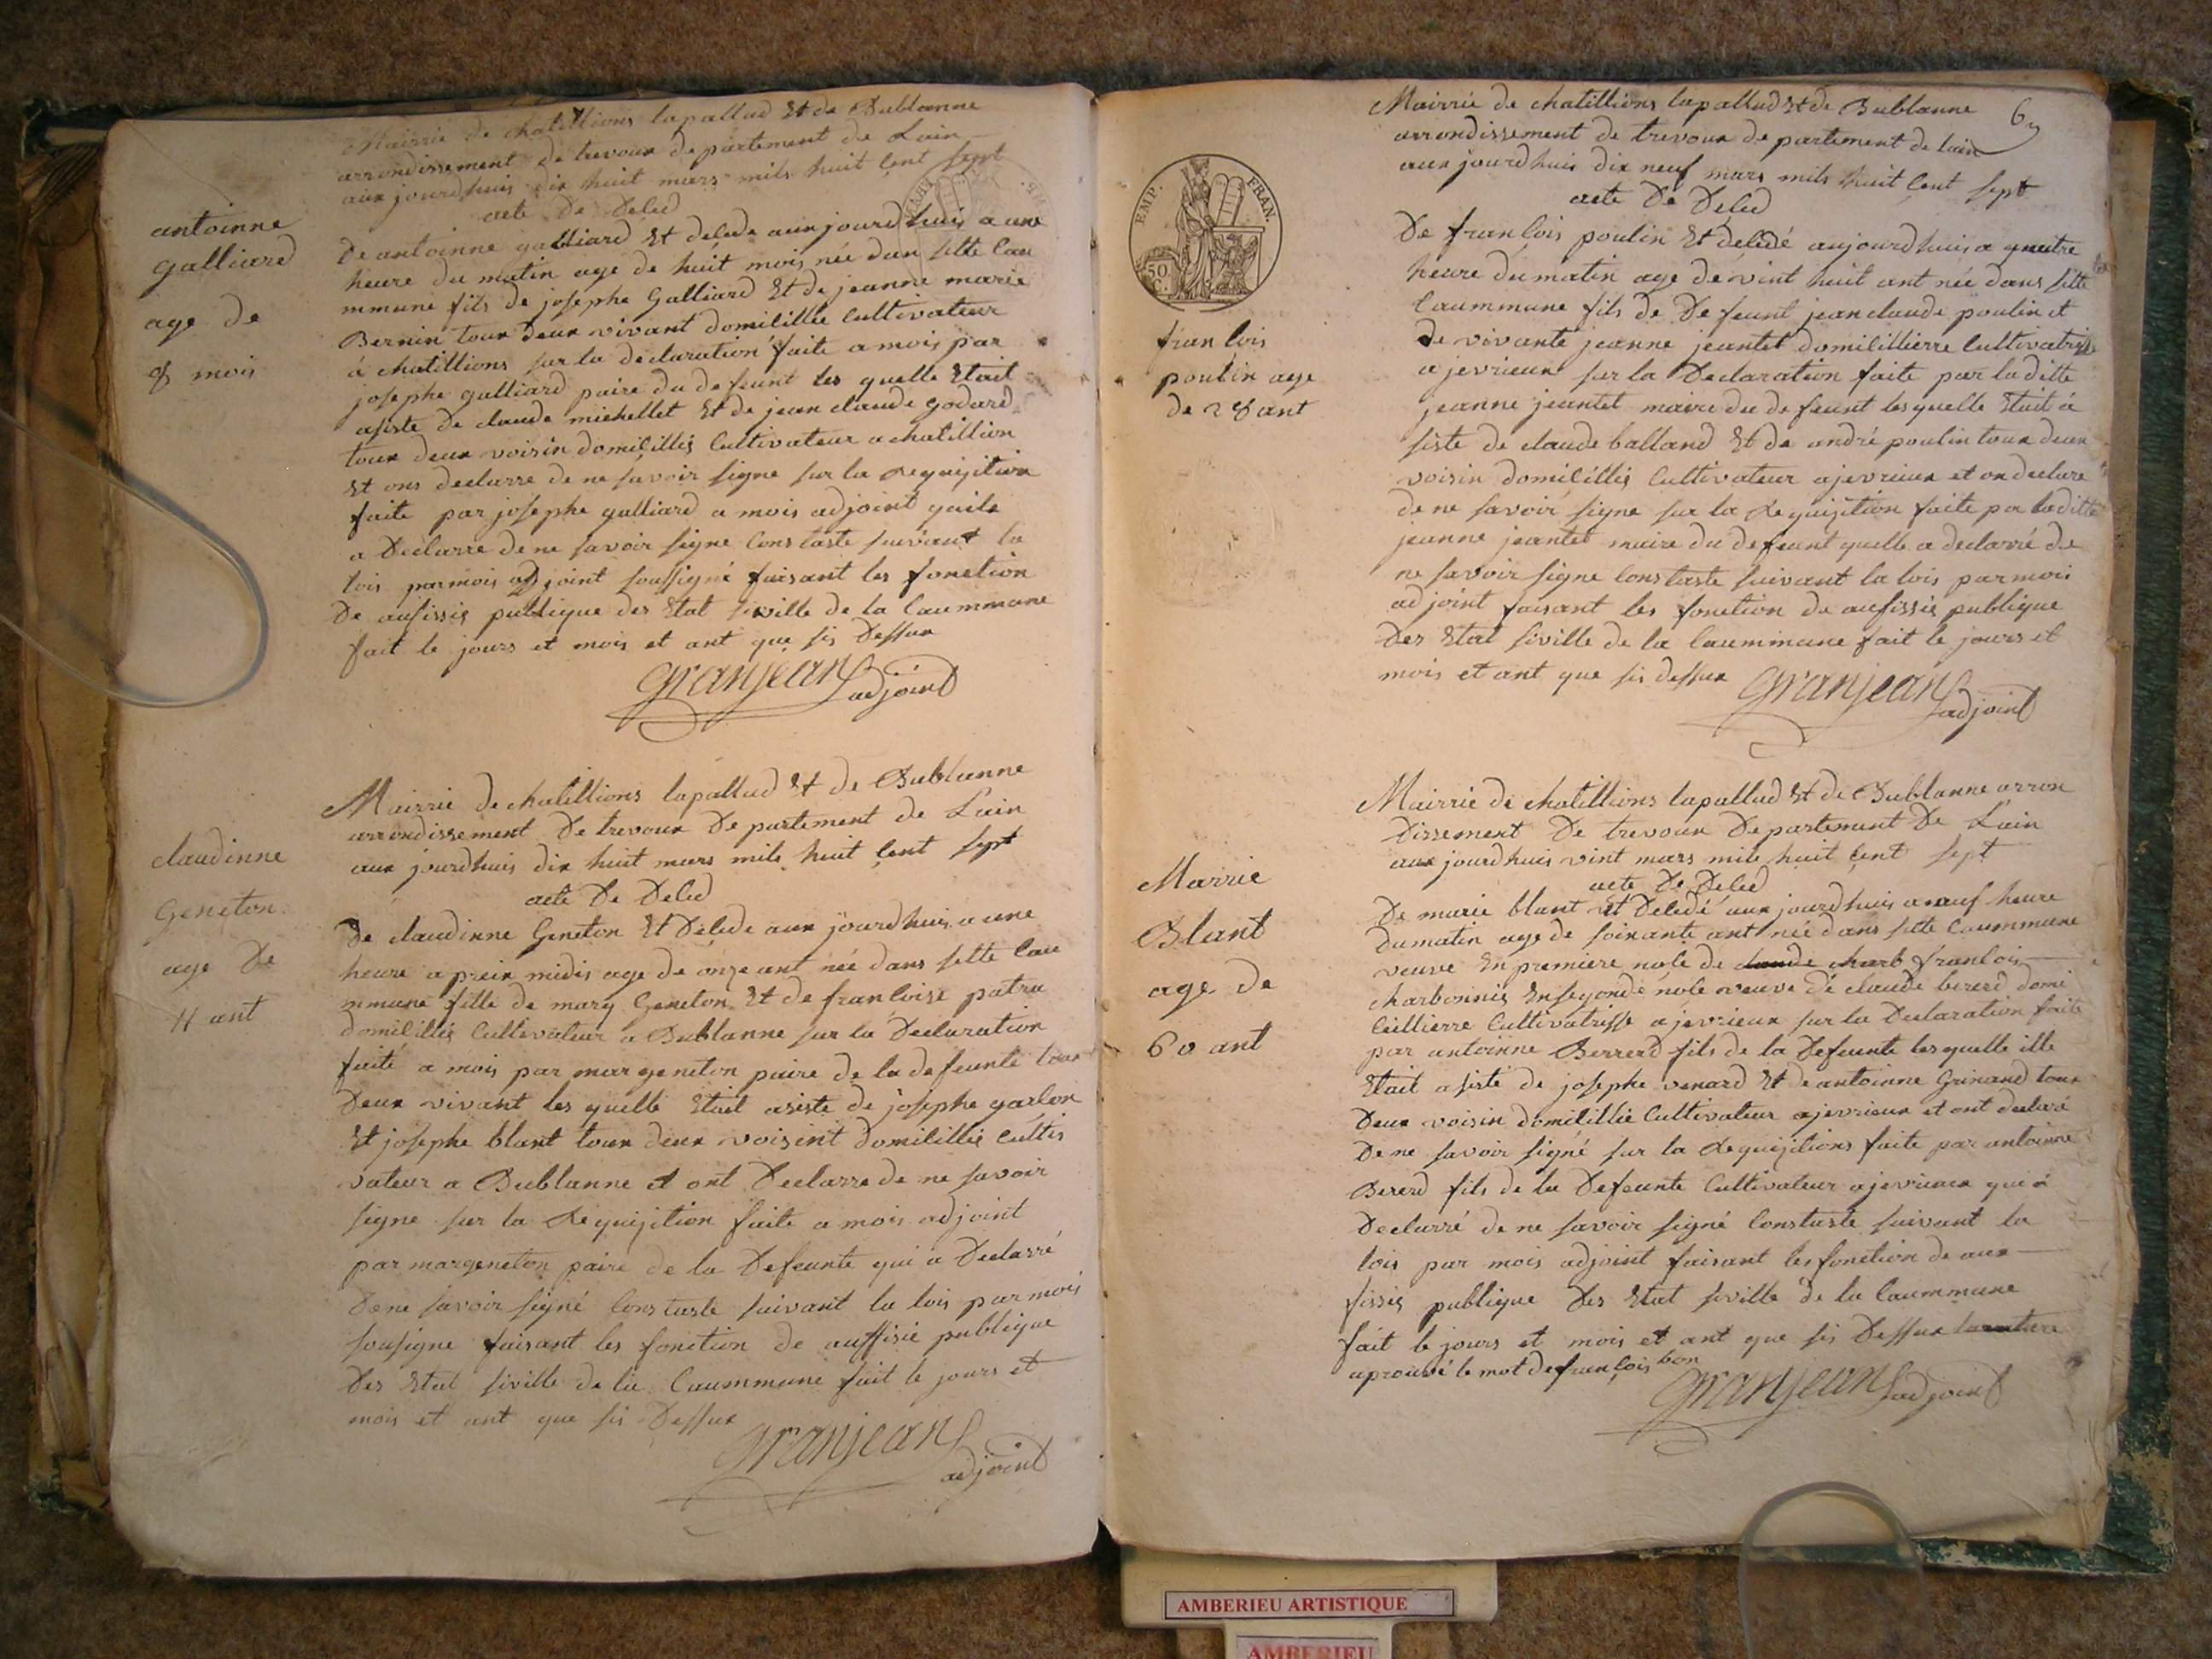 Mairrie de chatillions lapallud Et de Bublanne
arrondissement de trevoux departement de Lain
aux jourdhuis dix huit mars mils huit Cent sept
acte De Deled
antoinne
galliard
age de
8 mois
De antoinne galliard Et delede aux jourdhuis a une
heure du matin age de huit mois née dans sette Cau
mmune fils de josephe Galliard Et de jeanne marie
Bernin toux deux vivant domicillie Cultivateur
á chatillions sur la declaration faite a mois par
josephe galliard paire du defeunt les quelle Etait
asiste de claude miehellet Et de jean claude godard
toux deux voisin domicilliés Cultivateur a chatillion
Et ons declarre de ne savoir signe sur la Requijition
faite par josephe galliard a mois adjoint quila
a Declarre de ne savoir signe Constaste suivant la
lois par mois adjoint soussigné faisant les fonction
De aufissis publique des Etat siville de la Caummune
fait le jours et mois et ant que sis Dessux
granjean adjoint
Mairrie de chatillions lapallud Et de Bublanne
arrondissement De trevoux Departement de Lain
aux jourdhuis dix huit mars mils huit Cent sept
acte De Deled
claudinne
Geneton
age De
11 ant
De claudinne Geneton Et Délede aux jourdhuis a une
heure apreix midis age de onze ant née dans sette Cau
mmune fille de marg Geneton Et de francoise patru
domicilliés Cultivateur a Bublanne sur la Declaration
faité a mois par mar geneton paire de la defeunte toux
Deux vivant les quelle Etait asiste de josephe garlon
Et josephe blant toux deux voisint domicillié Cultis
vateur a Bublanne et ont Declarre de ne savoir
signe sur la Requijition faite a mois adjoint
par margeneton paire de la Defeunte qui a Declarré
Dene savoir signé Constasté suivant la lois par mois
sousigne faisant les fonction de auffisie publique
Des Etat siville de la Caummune fait le jours et
mois et ant que sis Dessux
granjean
adjoint
Mairrie de chatillions lapallud Et de Bublanne
arrondissement de trevoux departement de lain
aux jourdhuis dix neuf mars mils huit Cent sept
acte De Deled
EMP. FRAN.
50
C.
francois
poulin age
de 28 ant
De francois poulin Et deledé aujourdhuis a quatre
heure du matin age de vint huit ant née dans sette
Caummune fils de Defeunt jean claude poulin et
de vivante jeanne jeantet domicillierre Cultivatrisse
a jevrieux sur la Declaration faite par la ditte
jeanne jeantet maire du defeunt les quelle Etait á
siste de claude balland Et de andré poulin toux deux
voisin domicilliés Cultivateur ajevrieux et on declare
de ne savoir signe sur la Requijition faite par laditte
jeanne jeantet maire du defeunt quelle a declarré de
ne savoir signe Constaste suivant la lois par mois
adjoint faisant les fonction de aufissié publique
Des Etat siville de la Caummune fait le jours et
mois et ant que sis dessux granjean
adjoint
Mairrie de chatillions lapallud Et de Bublanne arron
dissement De trevoux Departement De Lain
aux jourdhuis vint mars mile huit Cent sept
acte De Deled
Marrie
Blant
age de
60 ant
De marie blant Et Deledé aux jourdhuis a neuf heure
Dumatin age de soixante ant née dans sette Caummune
veuve En premiere nole de claude charb francois
charbonnis En segonde nole veuve de claude bererd domi
Ceillierre Cultivatrisse a jevrieux sur la Declaration faite
par antoinne Bererd fils de la Defeunte les quelle ille
Etait asisté de josephe venard Et de antoinne Grinand toux
Deux voisin domicillie Cultivateur ajevrieux et ont declaré
De ne savoir signé sur la Requijitions faite par antoinne
Bererd fils de la Defeunte Cultivateur ajevrieux qui á
Declarré de ne savoir signé Constasté suivant la
lois par mois adjoint faisant les fonction de aux
fissis publique Des Etat siville de la Caummune
fait le jours et mois et ant que sis Dessux
aprouvé le mot de francois bon
granjean adjoint
AMBERIEU ARTISTIQUE
AMBERIEU